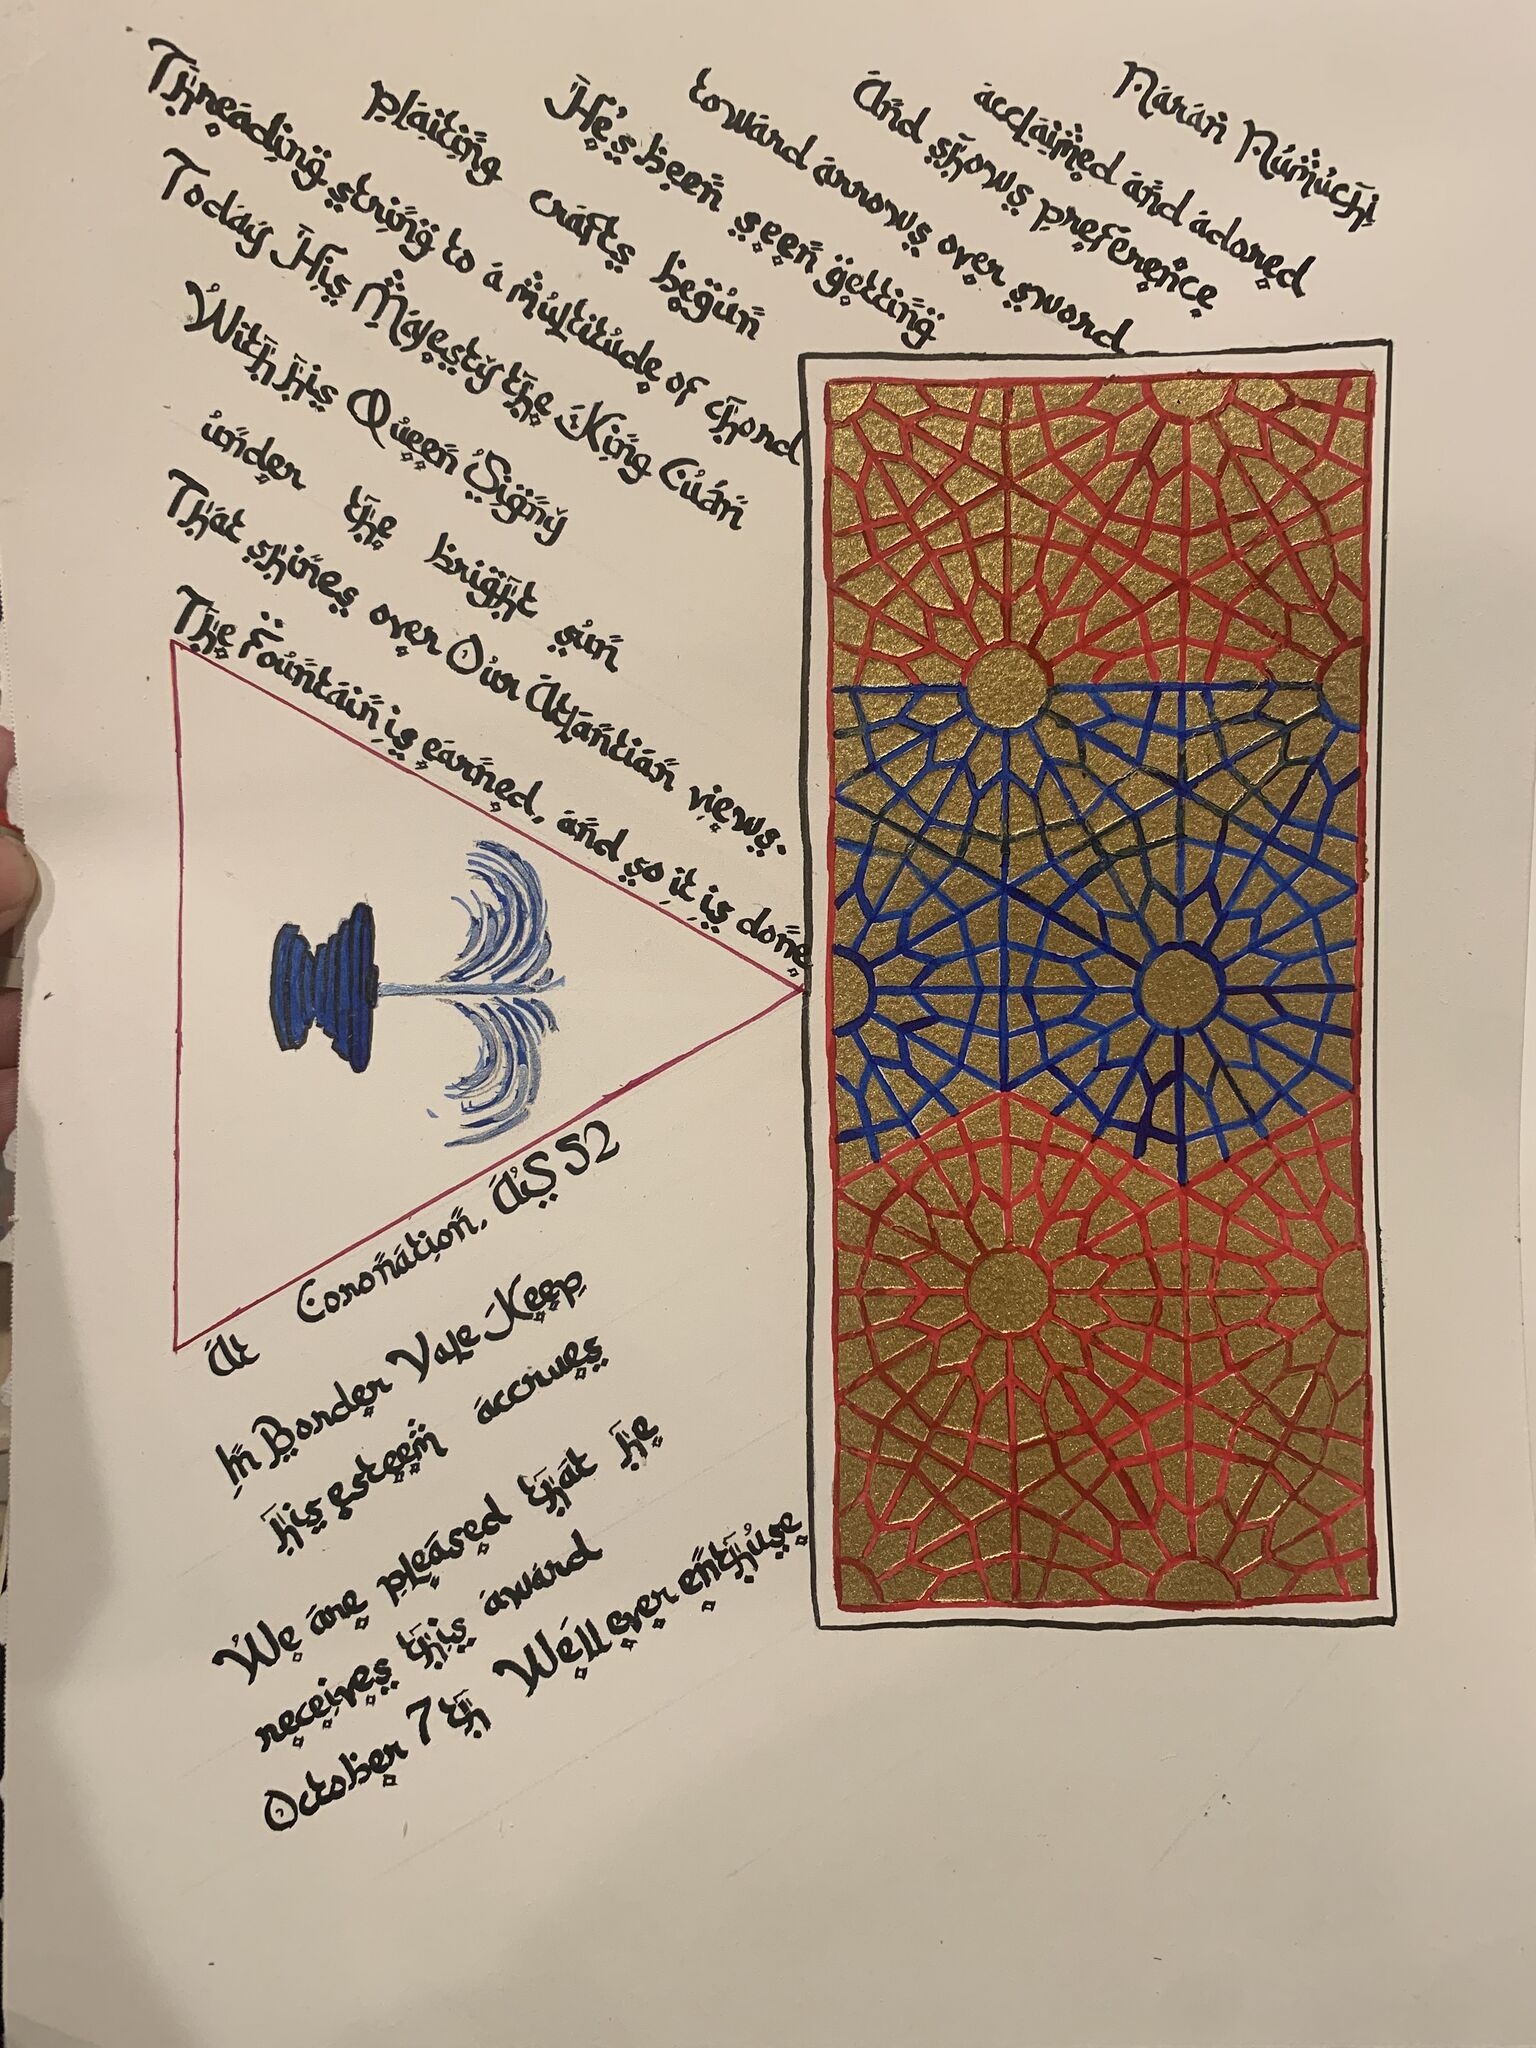 Naran Numuchi
acclaimed and adored
And shows preference
toward arrows over sword
He's been seen getting
plaiting crafts begun
Threading string to a multitude of chord
Today His Majesty the King Cuán
With his Queen Signy
under the bright sun
That shines over Our Atlantian views.
The Fountain is earned, and so it is done
At Coronation, AS 52
In Border Vale Keep
his esteem accrues
We are pleased that he
receives this award
October 7th We'll ever enthuse